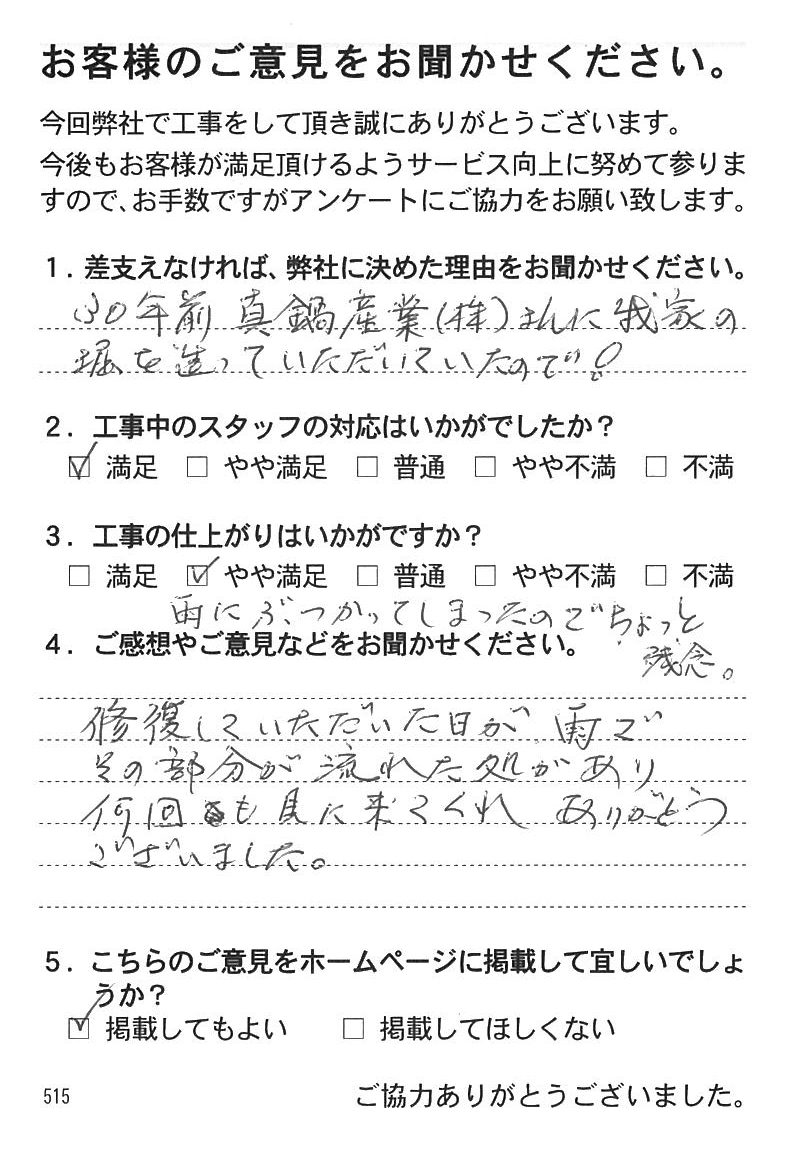 お客様のご意見をお聞かせください。
今回弊社で工事をして頂き誠にありがとうございます。
今後もお客様が満足頂けるようサービス向上に努めて参りま
すので、お手数ですがアンケートにご協力をお願い致します。
1. 差支えなければ、弊社に決めた理由をお聞かせください。
30年前 真鍋産業(株)さんに我家の
堀を造っていただいていたので。
2. 工事中のスタッフの対応はいかがでしたか？
☑ 満足 □ やや満足 □ 普通 □ やや不満 □ 不満
3. 工事の仕上がりはいかがですか？
□ 満足 ☑ やや満足 □ 普通 □ やや不満 □ 不満
雨にぶつかってしまったのでちょっと
残念。
4. ご感想やご意見などをお聞かせください。
修復していただいた日が 雨で
その部分が流れた処があり
何回も見に来てくれ ありがとう
ございました。
5. こちらのご意見をホームページに掲載して宜しいでしょ
うか？
☑ 掲載してもよい □ 掲載してほしくない
515 ご協力ありがとうございました。